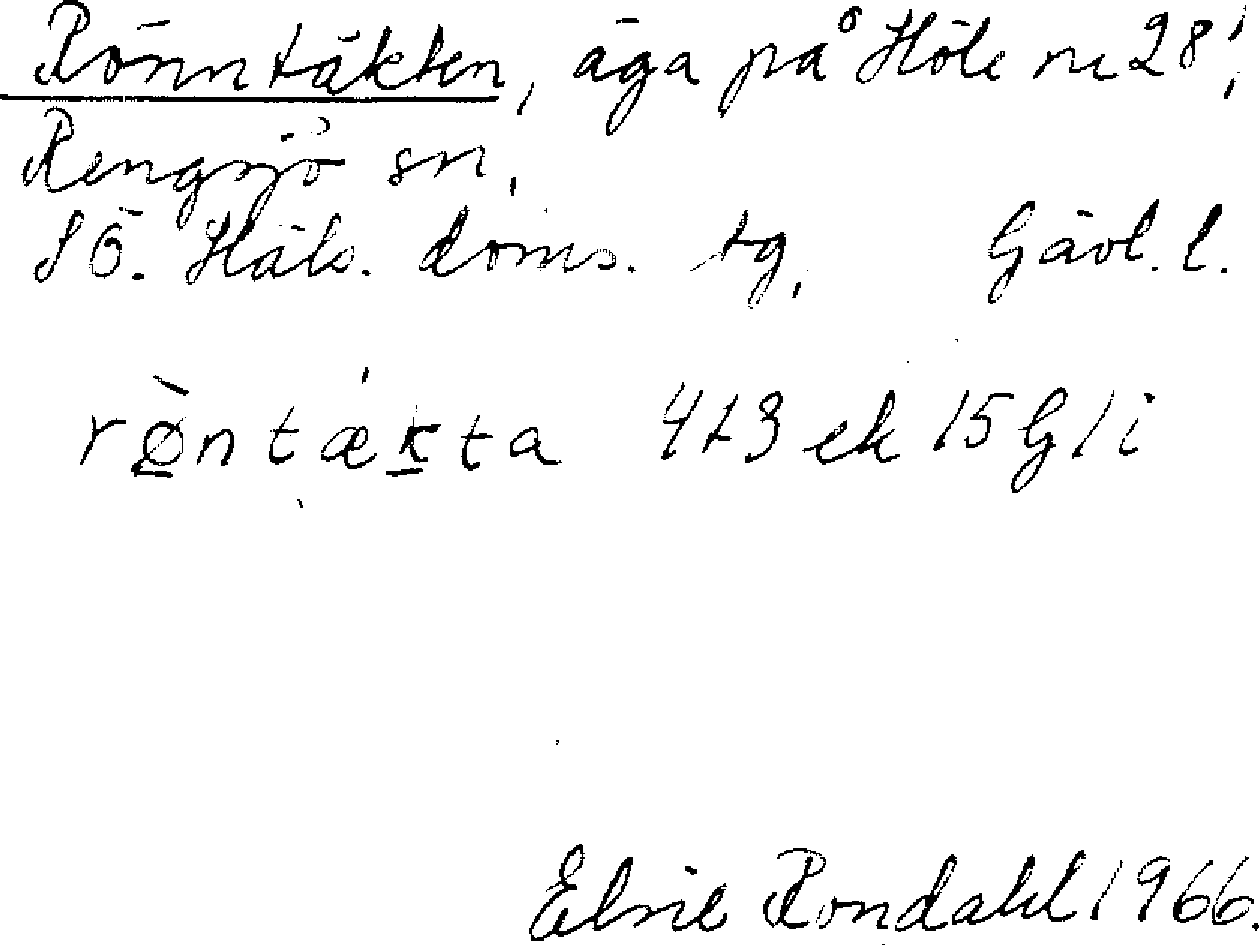 Rönntäkten, äga på Höle nr 28,
Rengsjö sn,
SÖ. Häls. doms. tg, Gävl. l.
rø̀ntækta 4t3 ek 15 G 1 i
Elsie Rondahl 1966.